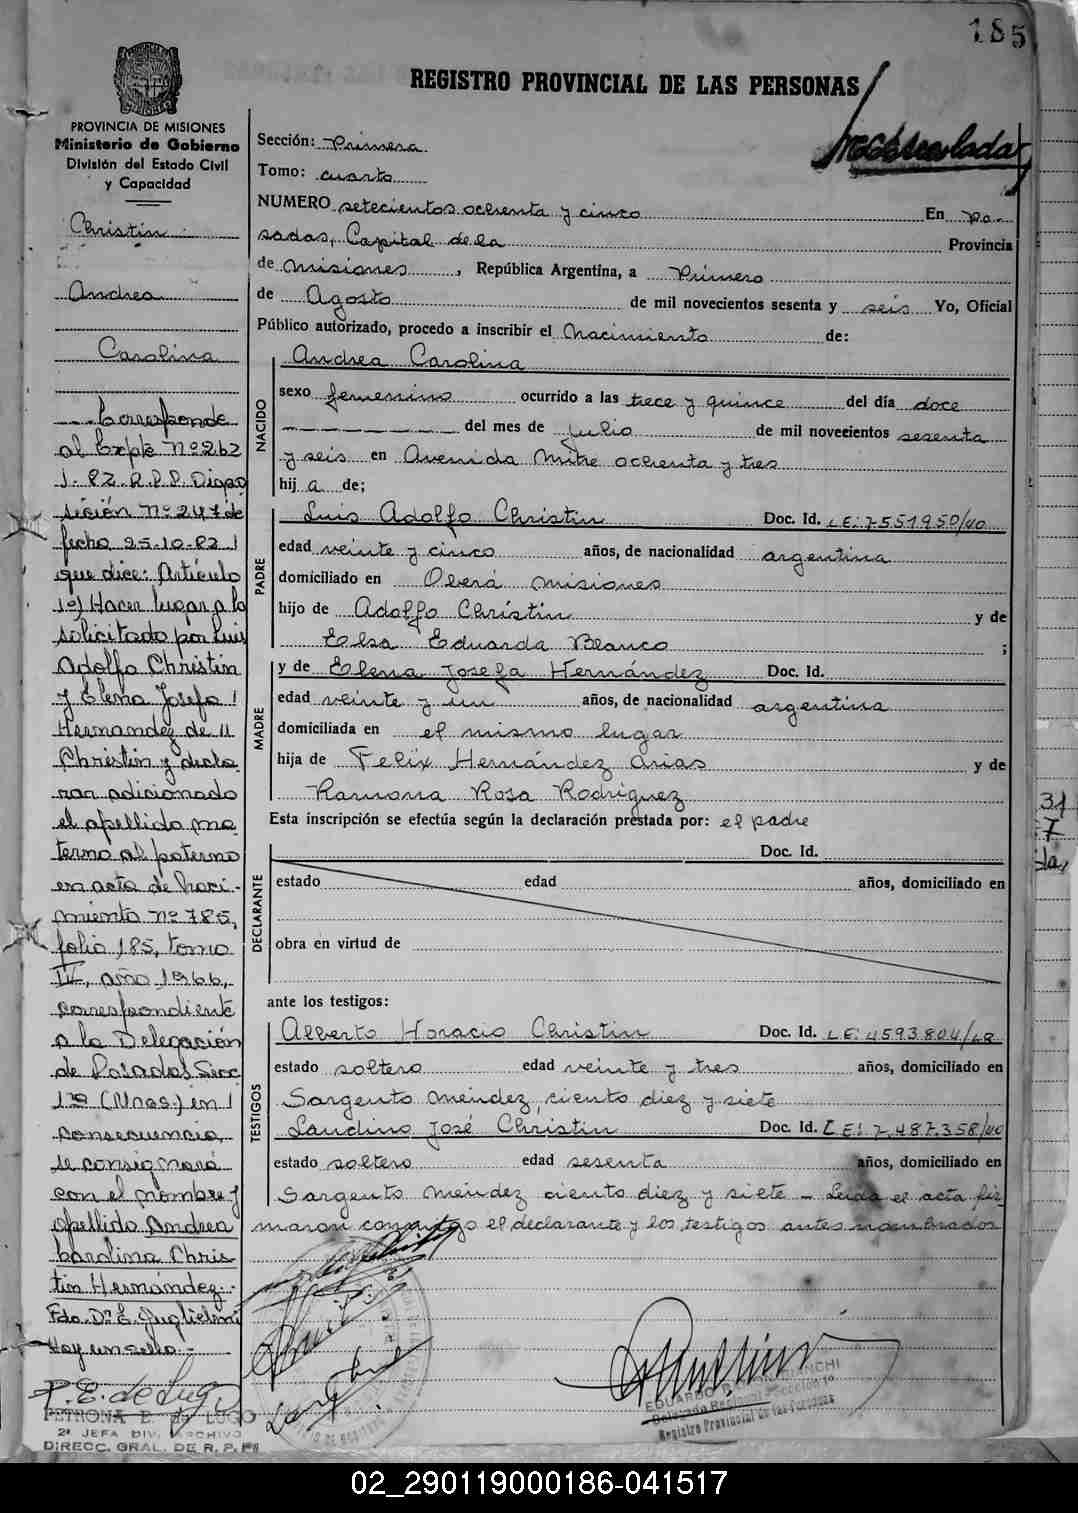 185
REGISTRO PROVINCIAL DE LAS PERSONAS
PROVINCIA DE MISIONES
Ministerio de Gobierno
División del Estado Civil
y Capacidad
Christin
Andrea
Carolina
Corresponde
al Expte Nº 262
J. 82. R.P.P. Dispo
sición Nº 247 de
fecha 25-10-82
que dice: Artículo
1º) Hacer lugar a lo
solicitado por Luis
Adolfo Christin
y Elena Josefa
Hernandez de
Christin y decla
rar adicionado
el apellido ma
terno al paterno
en acta de Naci-
miento Nº 785,
folio 185, tomo
IV, año 1966,
correspondiente
a la Delegación
de Posadas Secc
1ra (Unas.) en
consecuencia,
se consignará
con el nombre y
apellido Andrea
Carolina Chris
tin Hernández.-
Fdo. D. E. Guglielmi
Hay un sello.-
P. E. de Lugo
PETRONA E. de LUGO
2ª JEFA DIV. ARCHIVO
DIRECC. GRAL. DE R. P. P.
Sección: Primera
Tomo: cuarto
NUMERO setecientos ochenta y cinco En Po-
sadas, Capital de la Provincia
de Misiones, República Argentina, a Primero
de Agosto de mil novecientos sesenta y seis Yo, Oficial
Público autorizado, procedo a inscribir el Nacimiento de:
NACIDO
Andrea Carolina
sexo femenino ocurrido a las trece y quince del día doce
del mes de julio de mil novecientos sesenta
y seis en Avenida Mitre ochenta y tres
hij a de;
PADRE
Luis Adolfo Christin Doc. Id. LE: 7551950/40
edad veinte y cinco años, de nacionalidad argentina
domiciliado en Oberá Misiones
hijo de Adolfo Christin y de
Elsa Eduarda Blanco ;
MADRE
y de Elena Josefa Hernández Doc. Id.
edad veinte y un años, de nacionalidad argentina
domiciliada en el mismo lugar
hija de Felix Hernández Arias y de
Ramona Rosa Rodriguez
Esta inscripción se efectúa según la declaración prestada por: el padre
DECLARANTE
Doc. Id.
estado edad años, domiciliado en
obra en virtud de
ante los testigos:
TESTIGOS
Alberto Horacio Christin Doc. Id. LE: 4593804/
estado soltero edad veinte y tres años, domiciliado en
Sargento Mendez, ciento diez y siete
Laudino José Christin Doc. Id. LE: 7.487.358/40
estado soltero edad sesenta años, domiciliado en
Sargento Mendez ciento diez y siete - Leida el acta fir
maron conmigo el declarante y los testigos antes nombrados
EDUARDO
Delegado Regional Sección 1ª
Registro Provincial de las Personas
31
7
02_290119000186-041517